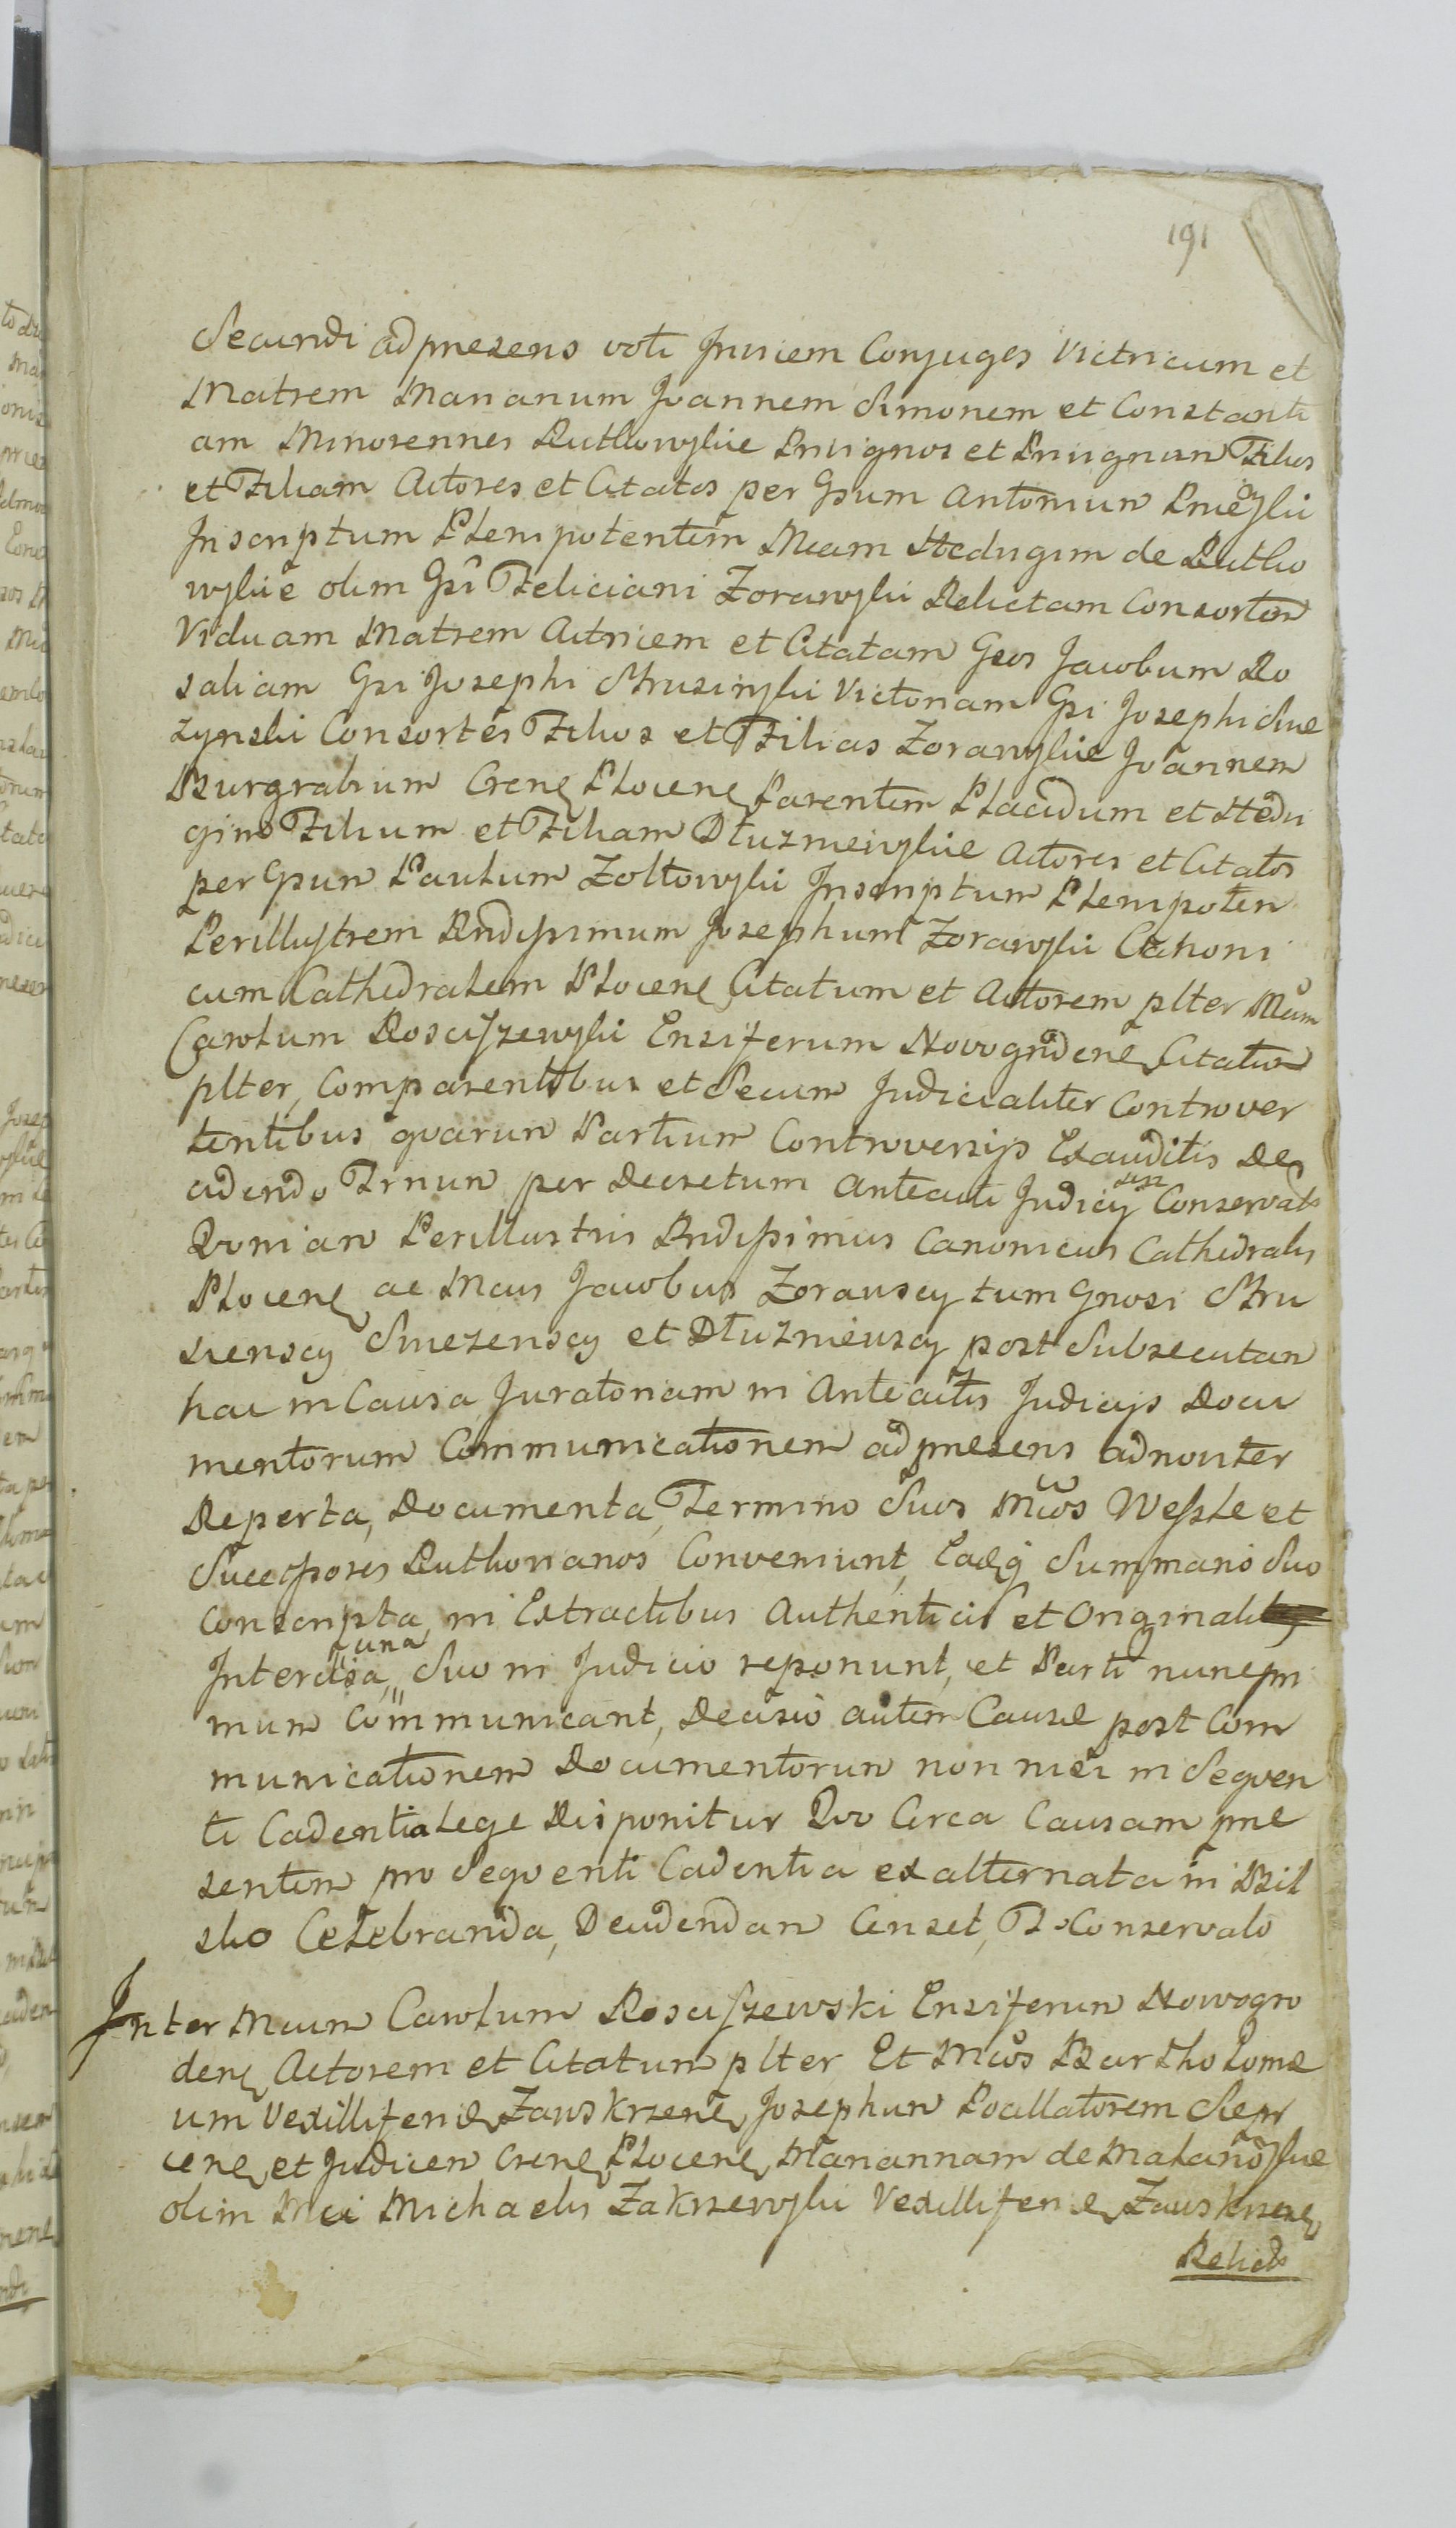 191
Secundi ad presens voti Invicem Conjuges Victricum et
Matrem Marianum Joannem Simonem et Constanti
am Minorennes Rutkowskie Privignos et Privignam Filios
et Filiam Actores et Citatos per Gsum Antonium
Inscriptum Plenipotentem Mcam Hedvigim de Rutko
wskie olim Gsi Feliciani Zorawski Relictam Consortem
Viduam Matrem Actricem et Citatam Gsos Jacobum Ro
saliam Gsi Josephi Strusinski Victoriam Gsi Josephi Sme
zynski Consortes Filios et Filias Zorawskie Joannem
Burgrabium Crens Plocens Parentem Placidum et Hedvi
gim Filium et Filiam Dłuzniewskie Actores et Citatos
per Gsum Paulum Zołtowski Inscriptum Plenipoten
Perillustrem Rndissimum Josephum Zorawski Canoni
cum Cathedralem Plocens Citatum et Actorem plter Mcum
Carolum Rosciszewski Ensiferum Novogrodens Citatum
plter, Comparentibus et Secum Judicialiter Controver
tentibus quarum Partium Controversijs Exauditis De
cidendo Trnum per Decretum Anteacti Judicij Conservat
Qvoniam Perillustris Rndissimus Canonicus Cathedralis
Plocens ac Mcus Jacobus Zorauscy tum Gnosi Stru
sienscy Smezenscy et Dłuznieuscy post Subsecutam
hac in Causa Juratoriam in Anteactis Judicijs Docu
mentorum Communicationem ad presens adnoviter
Reperta, Documenta, Termino Suos Mcos Wessle et
Successores Rutkovianos Conveniunt, Eadq Summario Suo
Conscripta, in Extractibus Authenticis et Originali
Intercisa, una Suo in Judicio reponunt, et Parti nunc pri
mum Communicant, Decisio autem Causæ post Com
municationem Documentorum non nisi in Seqven
ti Cadentia Lege Disponitur Qvo Circa Causam præ
sentem pro Seqventi Cadentia ex alternata in Bil
sko Celebranda, Decidendam Censet, T. Conservato
Inter Mcum Carolum Rosciszewski Ensiferum Nowogro
dens Actorem et Citatum plter Et Mcos Bartholomæ
um Vexilliferid Zawskrzens Josephum Pocillatorem Sierp
cens et Judicem Crens Plocens Mariannam de
olim Mci Michaelis Zakrzewski Vexilliferid Zawskrzens
Relict